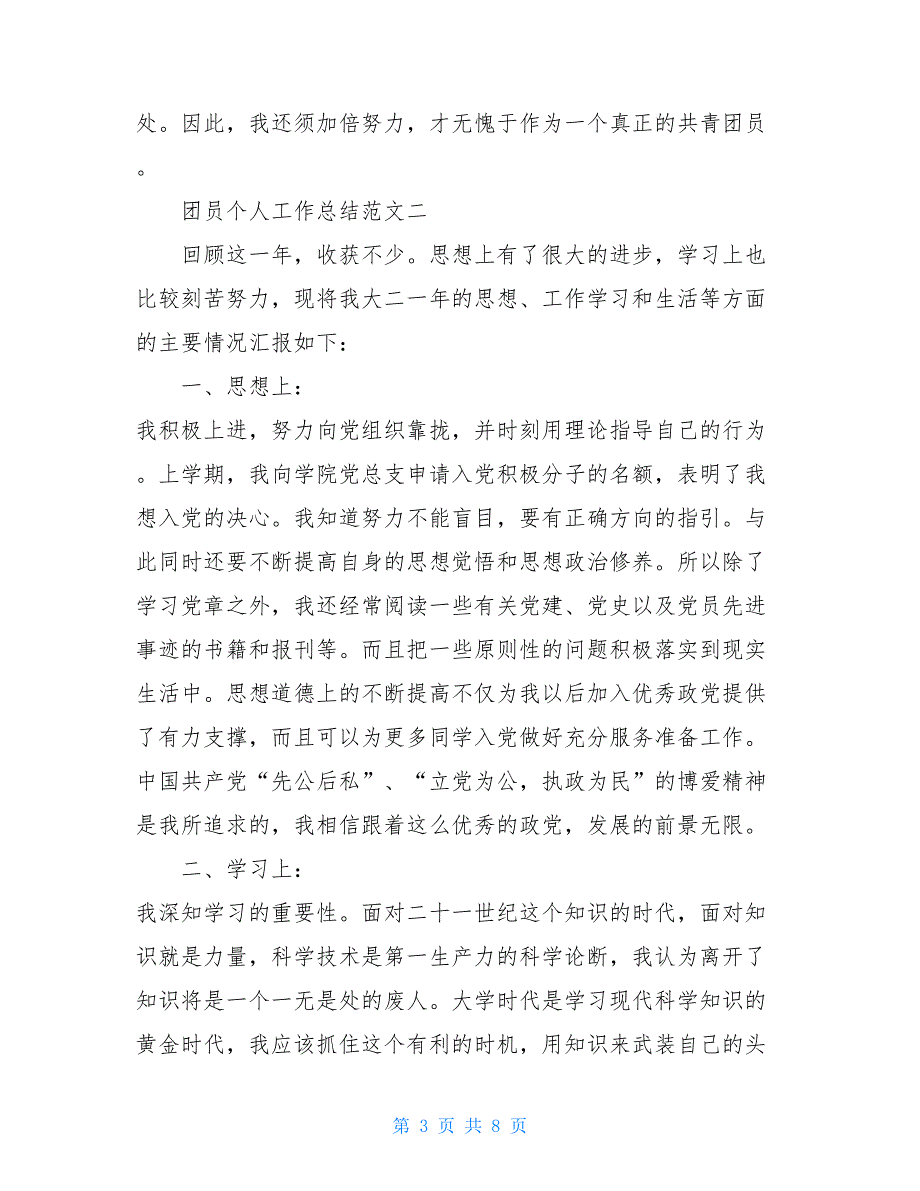 处。因此，我还须加倍努力，才无愧于作为一个真正的共青团员
。
团员个人工作总结范文二
回顾这一年，收获不少。思想上有了很大的进步，学习上也
比较刻苦努力，现将我大二一年的思想、工作学习和生活等方面
的主要情况汇报如下：
一、思想上：
我积极上进，努力向党组织靠拢，并时刻用理论指导自己的行为
。上学期，我向学院党总支申请入党积极分子的名额，表明了我
想入党的决心。我知道努力不能盲目，要有正确方向的指引。与
此同时还要不断提高自身的思想觉悟和思想政治修养。所以除了
学习党章之外，我还经常阅读一些有关党建、党史以及党员先进
事迹的书籍和报刊等。而且把一些原则性的问题积极落实到现实
生活中。思想道德上的不断提高不仅为我以后加入优秀政党提供
了有力支撑，而且可以为更多同学入党做好充分服务准备工作。
中国共产党“先公后私”、“立党为公，执政为民”的博爱精神
是我所追求的，我相信跟着这么优秀的政党，发展的前景无限。
二、学习上：
我深知学习的重要性。面对二十一世纪这个知识的时代，面对知
识就是力量，科学技术是第一生产力的科学论断，我认为离开了
知识将是一个一无是处的废人。大学时代是学习现代科学知识的
黄金时代，我应该抓住这个有利的时机，用知识来武装自己的头
第 3 页 共 8 页